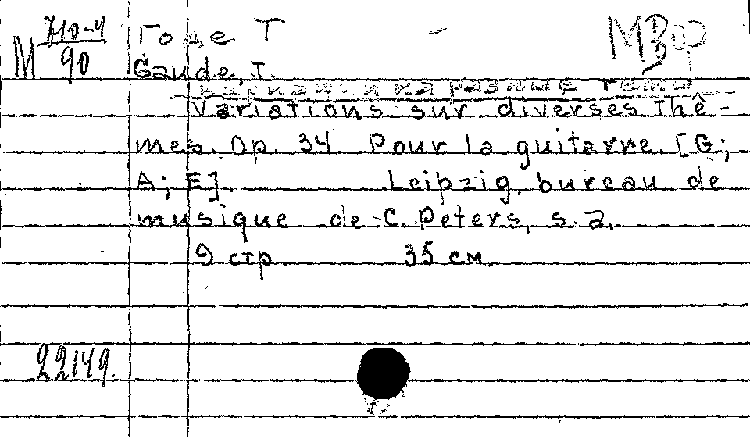 М 710-4/90 Годе Т МЗФ
Gaude, T.
Вариации на разные темы
Variations sur diverses Thè-
mes. Op. 34 Pour la guitarre. [G;
A; E] Leipzig, bureau de
musique de C. Peters, s. a.
9 стр 35 см
22149.